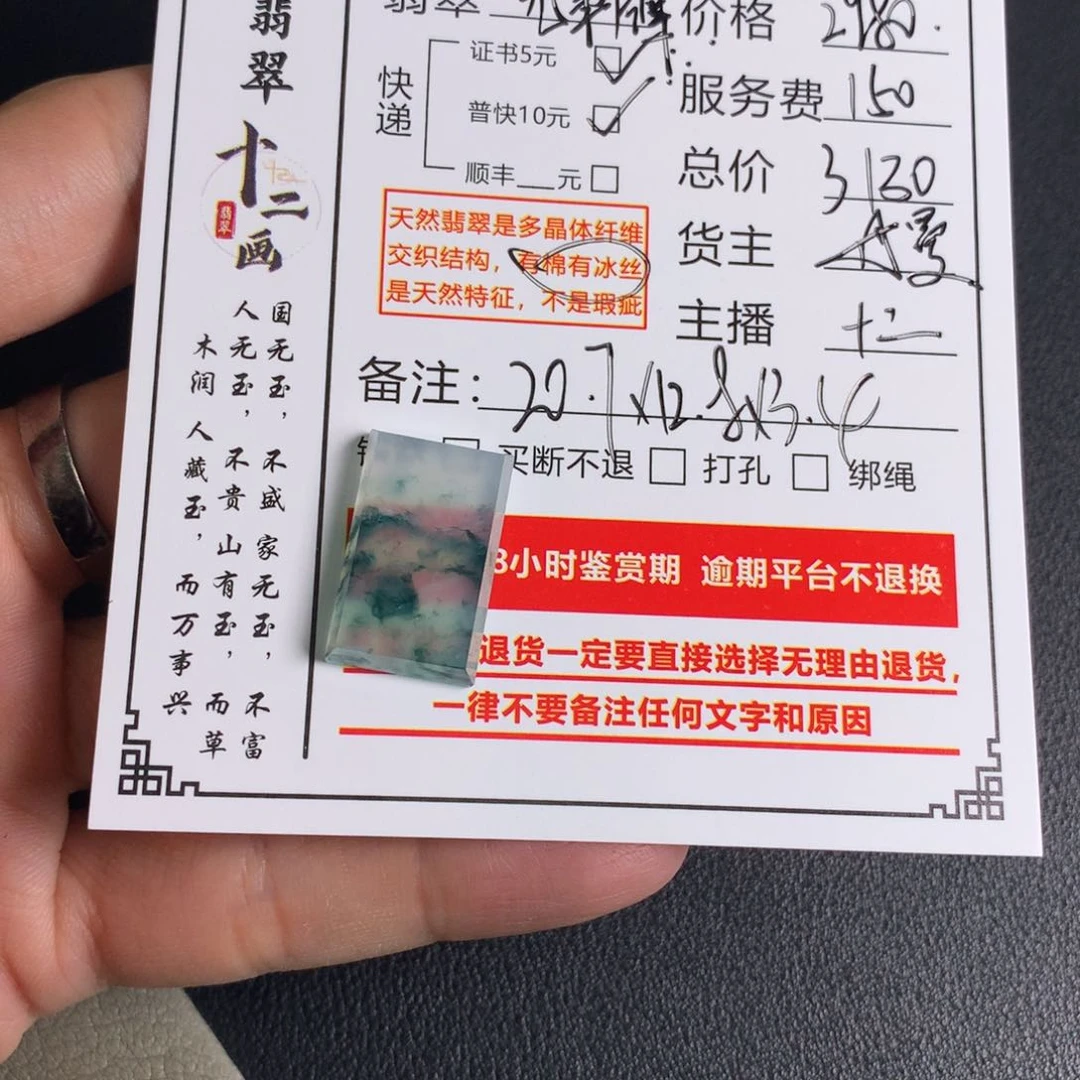 翡翠
十二画
翡翠
国无玉，不盛家无玉，不富
人无玉，不贵山有玉，而草
木润人藏玉，而万事兴
翡翠
价格 2980.
快递
证书5元
普快10元
顺丰__元
服务费 150
总价 3130
货主
主播 十二
天然翡翠是多晶体纤维
交织结构，有棉有冰丝
是天然特征，不是瑕疵
备注：20.7x12.8x3.4
买断不退 打孔 绑绳
8小时鉴赏期 逾期平台不退换
退货一定要直接选择无理由退货，
一律不要备注任何文字和原因